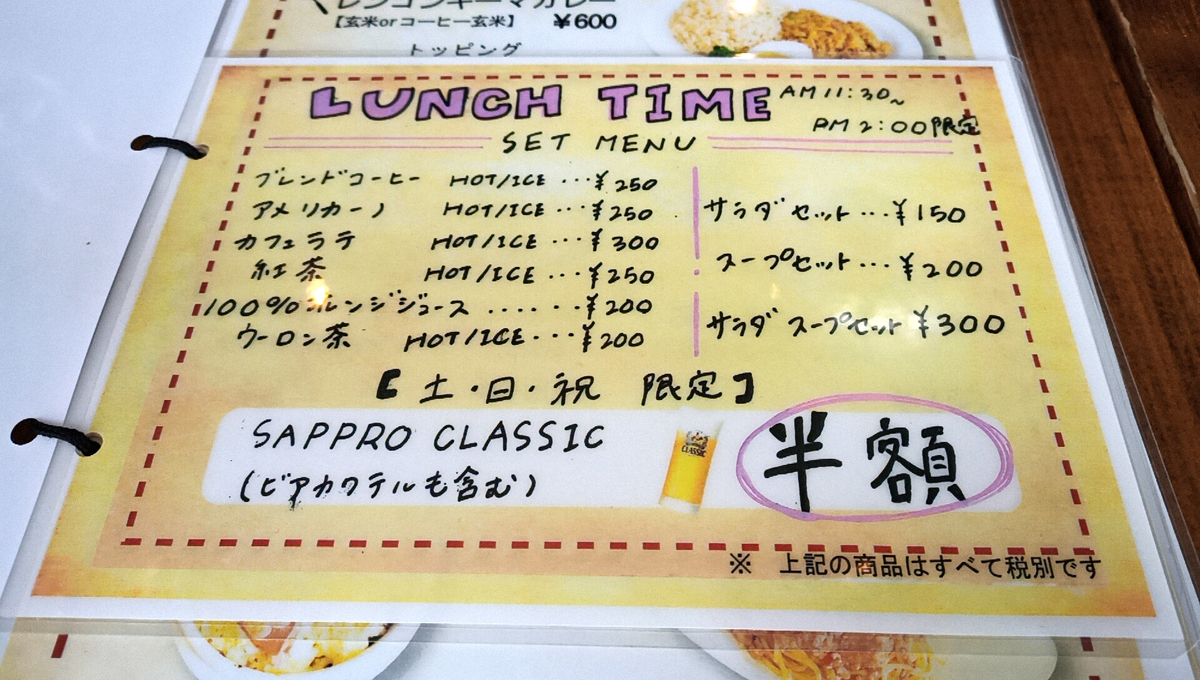 レンコンキーマカレー
【玄米orコーヒー玄米】 ¥600
トッピング
LUNCH TIME AM 11:30~
PM 2:00限定
SET MENU
ブレンドコーヒー HOT/ICE …¥250
アメリカーノ HOT/ICE …¥250
カフェラテ HOT/ICE …¥300
紅茶 HOT/ICE …¥250
100%オレンジジュース ........¥200
ウーロン茶 HOT/ICE …¥200
サラダセット…¥150
スープセット…¥200
サラダスープセット ¥300
【土・日・祝 限定】
SAPPRO CLASSIC
(ビアカクテルも含む)
CLASSIC
半額
※ 上記の商品はすべて税別です